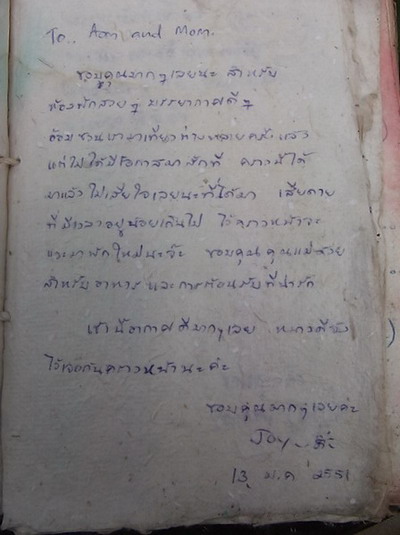 To.. Aom and Mom.
ขอบคุณมากๆเลยนะ สำหรับ
ห้องพักสวยๆ บรรยากาศดีๆ
อ้อมชวนเรามาเที่ยวท่านหลายครั้งแล้ว
แต่ไม่ได้มีโอกาสมาสักที คราวนี้ได้
มาแล้ว ไม่เสียใจเลยนะที่ได้มา เสียดาย
ที่มีเวลาอยู่น้อยเกินไป ไว้คราวหน้าจะ
แวะมาพักใหม่นะจ๊ะ ขอบคุณคุณแม่ด้วย
สำหรับอาหาร และการต้อนรับที่น่ารัก
เช้านี้อากาศดีมากๆเลย
ไว้เจอกันคราวหน้านะคะ
ขอบคุณมากๆเลยค่ะ
Joy
13 ม.ค 2551